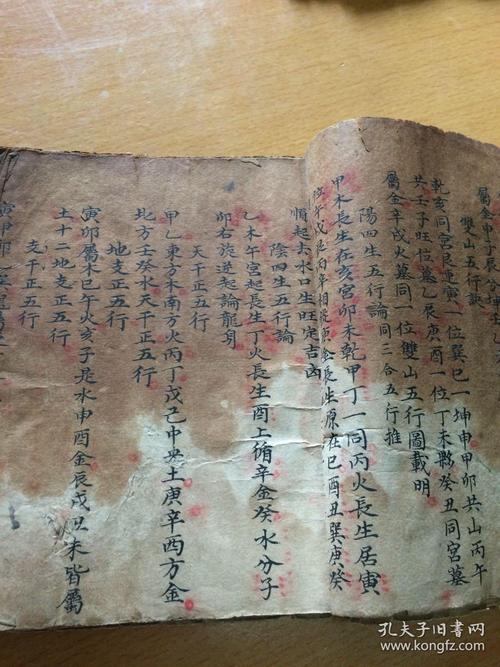 屬金
雙山五行訣
乾亥同宮艮連寅一位巽巳一坤申甲卯共山丙午
共壬子旺位墓乙辰庚酉一位丁未夥癸丑同宮墓
屬金辛戌火墓同一位雙山五行圖載明
陽四生五行論同二合五行推
甲木長生在亥宮卯未乾甲丁一同丙火長生居寅
金長生原在巳酉丑巽庚癸
順起去水口生旺定吉凶
陰四生五行論
乙木午宮起長生丁火長生酉上脩辛金癸水分子
卯右旋逆起論龍身
天干正五行
甲乙東方木南方火丙丁戊己中央土庚辛西方金
北方壬癸水天干正五行
地支正五行
寅卯屬木巳午火亥子是水申酉金辰戌丑未皆屬
土十二地支正五行
支干正五行
孔夫子旧书网
www.kongfz.com